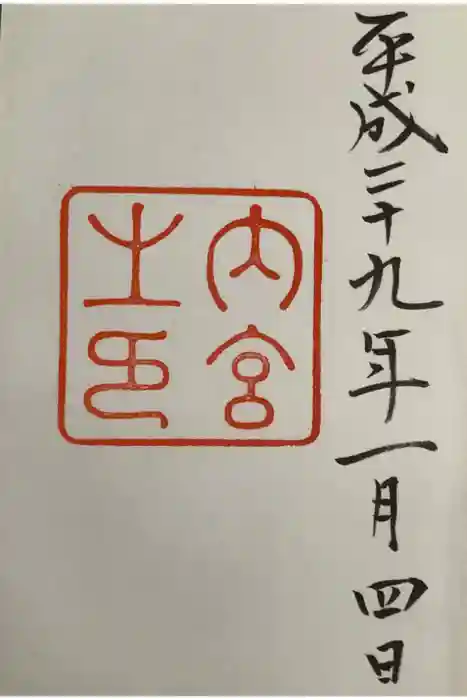 平成二十九年一月四日
内宮
之印